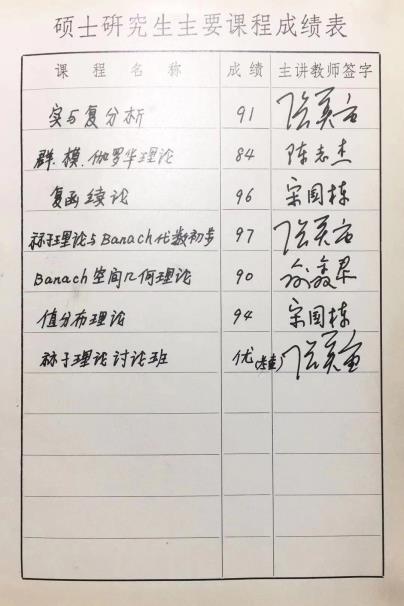 硕士研究生主要课程成绩表
课 程 名 称 成 绩 主讲教师签字
实与复分析 91
群.模.伽罗华理论 84 陈志杰
复函续论 96 宋国栋
算子理论与Banach代数初步 97
Banach空间几何理论 90
值分布理论 94 宋国栋
算子理论讨论班 优(考查)